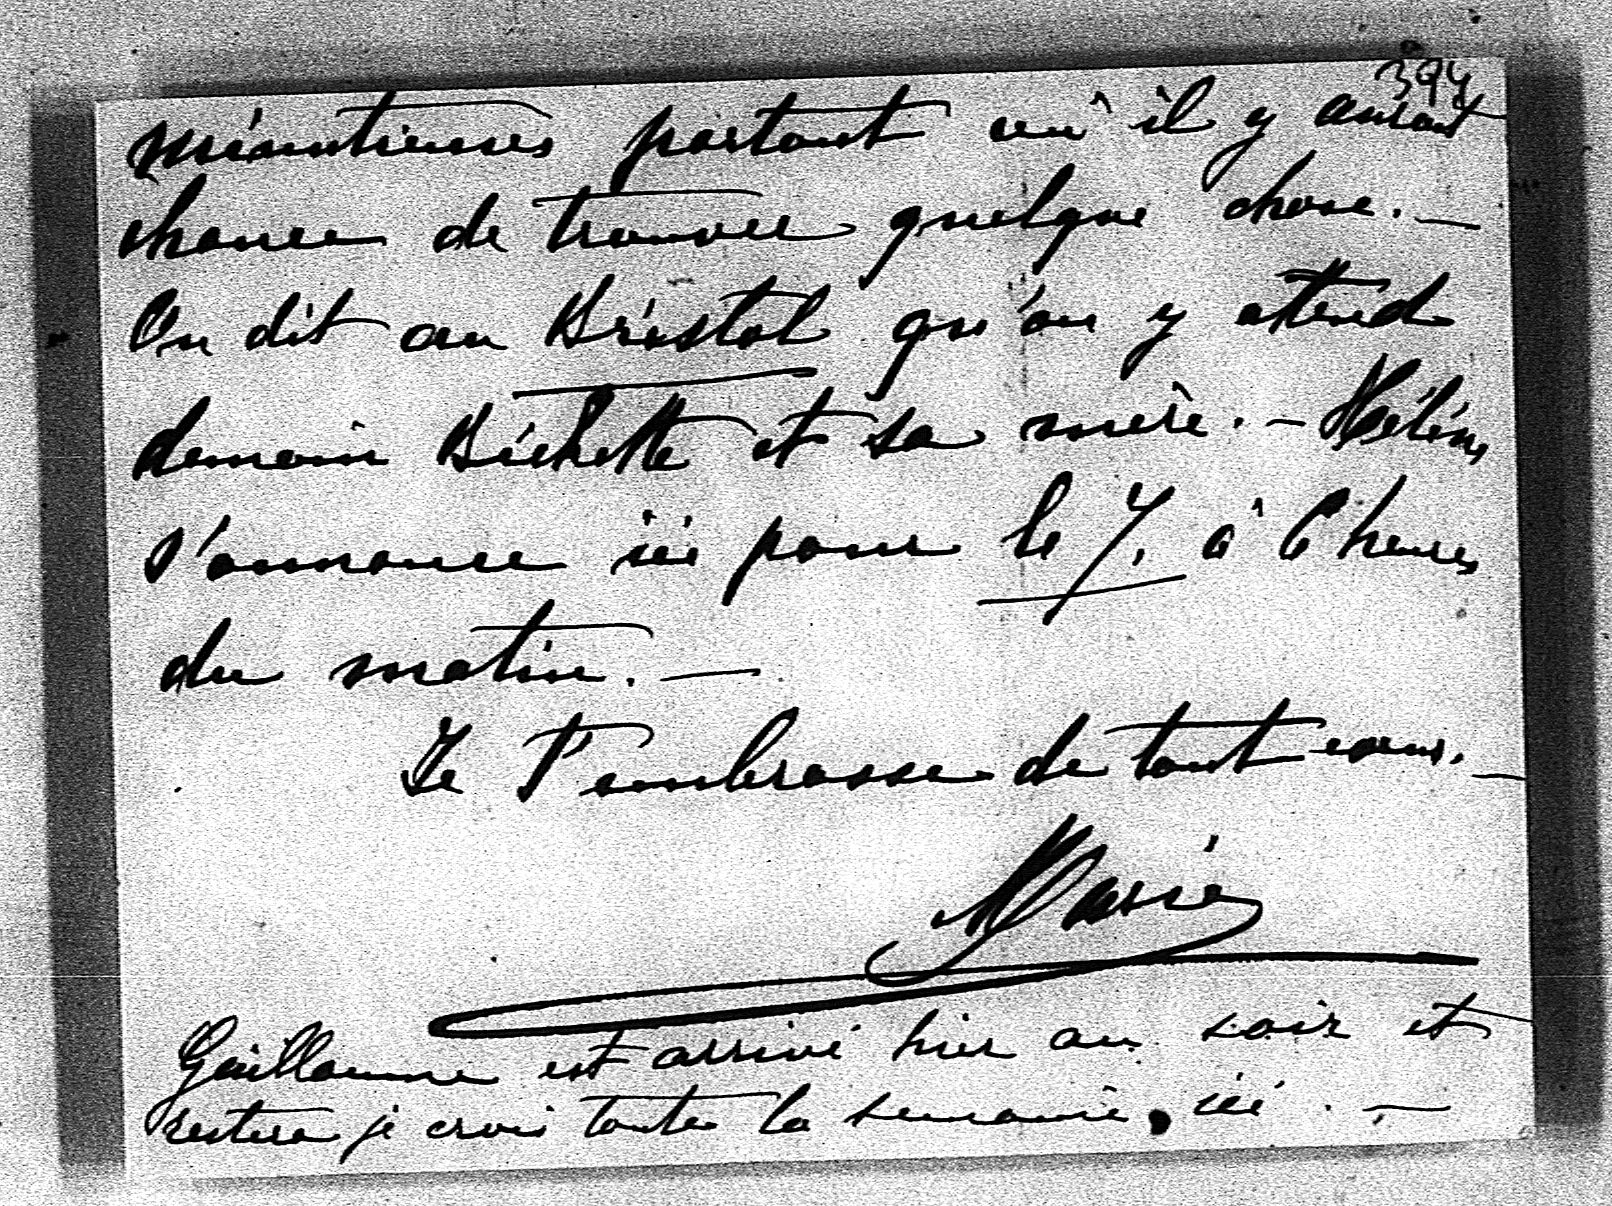 394
minutieuses partout où il y aurait
chance de trouver quelque chose. —
On dit au Bristol qu'on y attend
demain Bichette et sa mère. — Hélène
s'annonce ici pour le 7. à 6 heures
du matin. —
Je t'embrasse de tout cœur. —
Marie
Guillaume est arrivé hier au soir et
restera je crois toute la semaine, ici. —